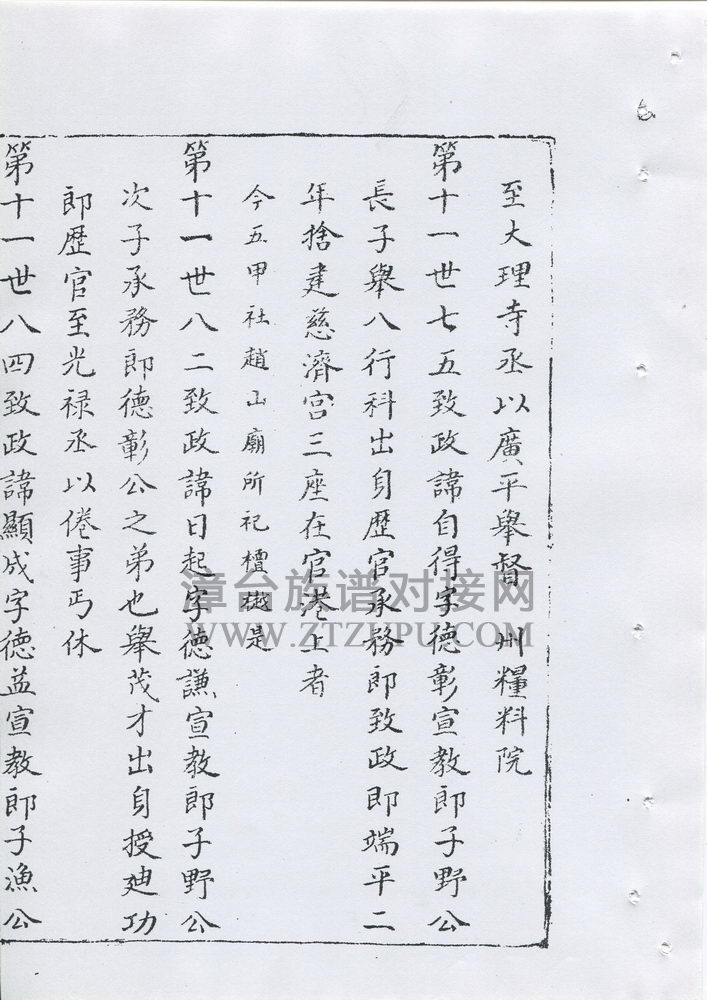 至大理寺丞以廣平舉督 州糧料院
第十一世七五致政諱自得字德彰宣教郎子野公
長子舉八行科出自歷官承務郎致政即端平二
年捨建慈濟宮三座在官港上者
今五甲社趙山廟所祀檀樾是
第十一世八二致政諱日起字德謙宣教郎子野公
次子承務郎德彰公之弟也舉茂才出自授廸功
郎歷官至光禄丞以倦事丐休
第十一世八四致政諱顯成字德益宣教郎子漁公
漳台族谱对接网
WWW.ZTZUPU.COM